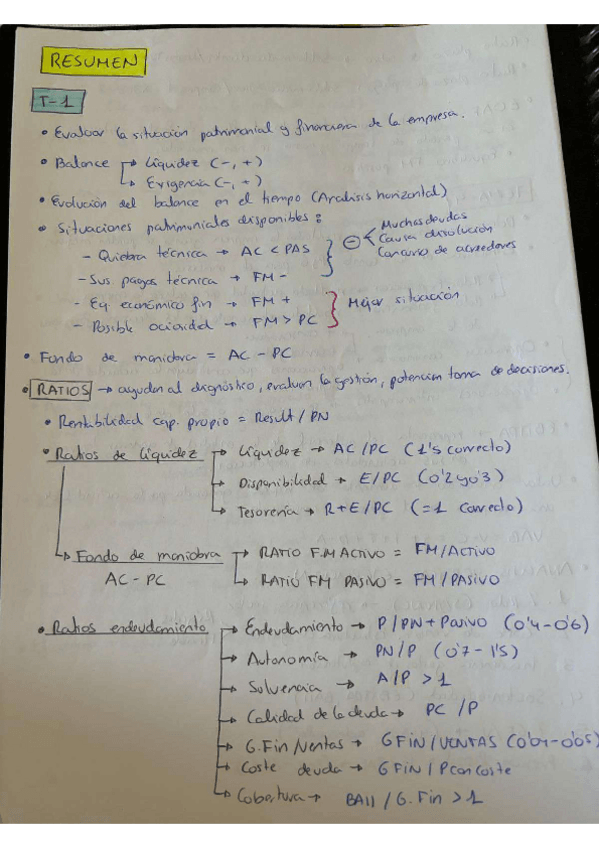 RESUMEN
T-1
• Evaluar la situación patrimonial y financiera de la empresa.
• Balance → Liquidez (-, +)
→ Exigencia (-, +)
• Evolución del balance en el tiempo (Analisis horizontal)
• Situaciones patrimoniales disponibles:
- Quiebra técnica → AC < PAS
- Sus. pagos técnica → FM -
⊖ Muchas deudas
Causa disolución
Concurso de acreedores
- Eq. económico fin → FM +
- Posible ociosidad → FM > PC
Mejor situación
• Fondo de maniobra = AC - PC
• RATIOS → ayudan al diagnóstico, evaluan la gestión, potencian toma de decisiones.
• Rentabilidad cap. propio = Result / PN
• Ratios de liquidez → Liquidez → AC / PC (1's correcto)
→ Disponibilidad → E/PC (0'2 y 0'3)
→ Tesorería → R+E/PC (=1 correcto)
→ Fondo de maniobra → RATIO F.M ACTIVO = FM/ACTIVO
AC - PC → RATIO FM PASIVO = FM/PASIVO
• Ratios endeudamiento → Endeudamiento → P/PN+Pasivo (0'4-0'6)
→ Autonomía → PN/P (0'7 - 1'5)
→ Solvencia → A/P > 1
→ Calidad de la deuda → PC /P
→ G.Fin/Ventas → GFIN/VENTAS (0'04-0'05)
→ Coste deuda → GFIN/P con coste
→ Cobertura → BAII / G.Fin > 1